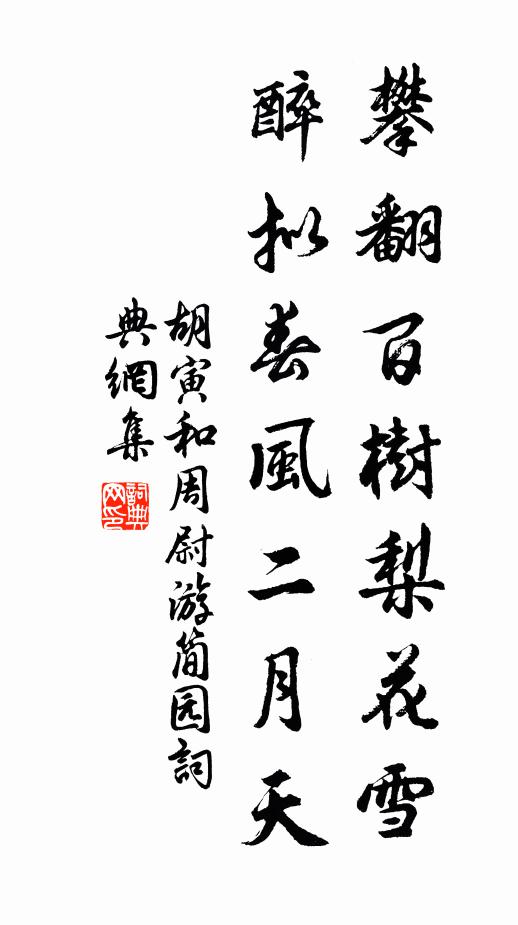 攀翻百樹梨花雪
醉拟春風二月天
胡寅和周尉游简园詞
典網集
詞典
网印